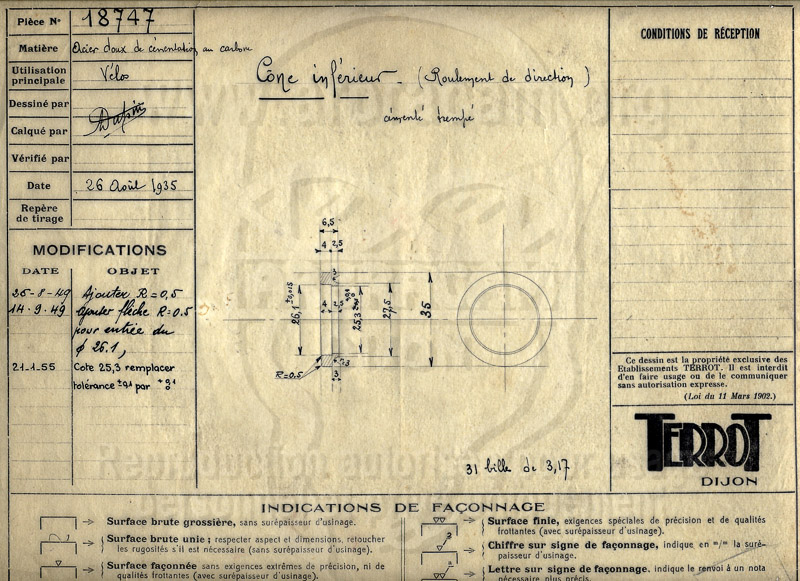 Pièce N° 18747
Matière Acier doux de cémentation au carbone
Utilisation principale Vélos
Dessiné par
Calqué par
Vérifié par
Date 26 Août 1935
Repère de tirage
MODIFICATIONS
DATE OBJET
25-8-49 Ajouter R=0,5
14-9-49 ajouter flèche R=0.5
pour entrée du
ϕ 26.1,
21-1-55 Cote 25,3 remplacer
tolérance ±0,1 par +0,1 0
Cône inférieur. (Roulement de direction)
cémenté trempé
6,5
4 2,5
3
26,1 ±0,015
4 2,5
25,3
27,5
35
R=0.5
3
3
31 bille de 3,17
CONDITIONS DE RÉCEPTION
Ce dessin est la propriété exclusive des
Etablissements TERROT. Il est interdit
d'en faire usage ou de le communiquer
sans autorisation expresse.
(Loi du 11 Mars 1902.)
TERROT
DIJON
INDICATIONS DE FAÇONNAGE
Surface brute grossière, sans surépaisseur d'usinage.
Surface brute unie; respecter aspect et dimensions, retoucher
les rugosités s'il est nécessaire (sans surépaisseur d'usinage).
Surface façonnée sans exigences extrêmes de précision, ni de
qualités frottantes (avec surépaisseur d'usinage).
Surface finie, exigences spéciales de précision et de qualités
frottantes (avec surépaisseur d'usinage).
Chiffre sur signe de façonnage, indique en m/m la suré-
paisseur d'usinage.
Lettre sur signe de façonnage, indique le renvoi à un nota
nécessaire plus précis.